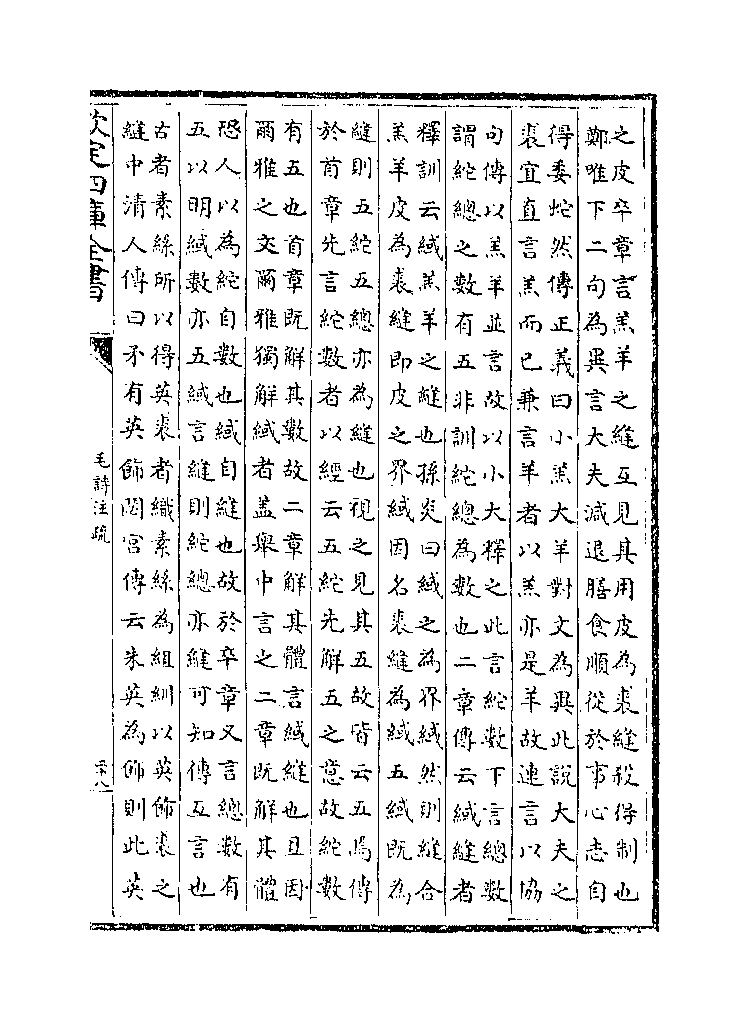 之皮卒章言羔羊之縫互見其用皮為裘縫殺得制也
鄭唯下二句為異言大夫減退膳食順從於事心志自
得委蛇然傳正義曰小羔大羊對文為異此說大夫之
裘宜直言羔而已兼言羊者以羔亦是羊故連言以協
句傳以羔羊並言故以小大釋之此言紽數下言總數
謂紽總之數有五非訓紽總為數也二章傳云緎縫者
釋訓云緎羔羊之縫也孫炎曰緎之為界緎然則縫合
羔羊皮為裘縫即皮之界緎因名裘縫為緎五緎既為
縫則五紽五總亦為縫也視之見其五故皆云五焉傳
於首章先言紽數者以經云五紽先解五之意故紽數
有五也首章既解其數故二章解其體言緎縫也且因
爾雅之文爾雅獨解緎者蓋舉中言之二章既解其體
恐人以為紽自數也緎自縫也故於卒章又言總數有
五以明緎數亦五緎言縫則紽總亦縫可知傳互言也
古者素絲所以得英裘者織素絲為組紃以英飾裘之
縫中清人傳曰矛有英飾閟宮傳云朱英為飾則此英
欽定四庫全書
毛詩注疏